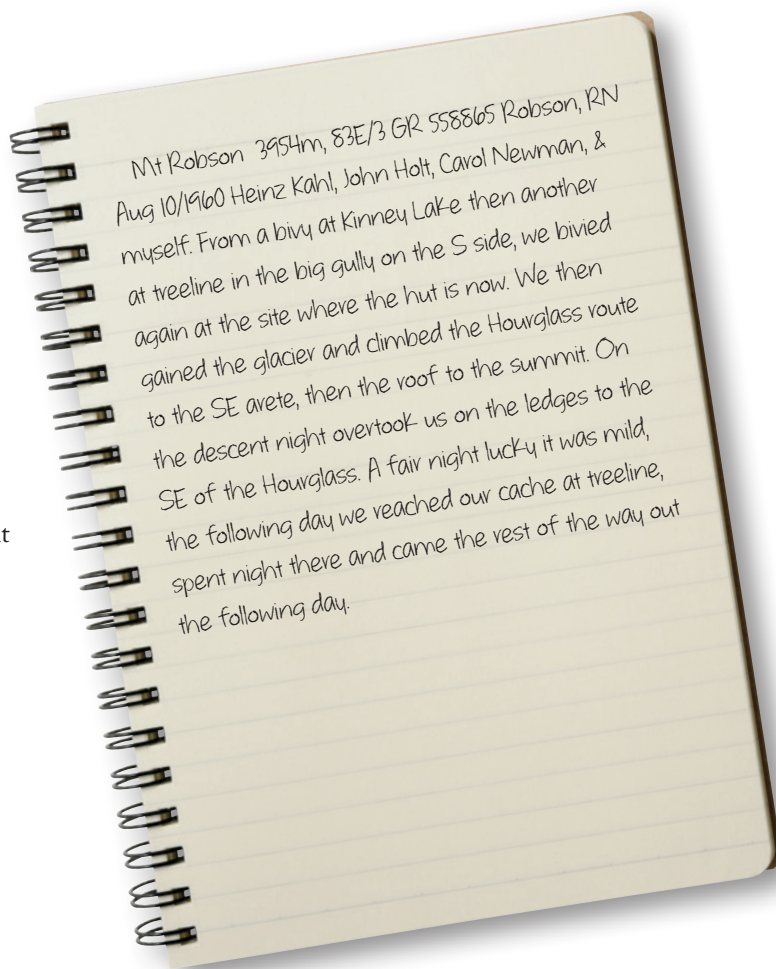 Mt Robson 3954m, 83E/3 GR 558865 Robson, RN
Aug 10/1960 Heinz Kahl, John Holt, Carol Newman, &
myself. From a bivy at Kinney Lake then another
at treeline in the big gully on the S side, we bivied
again at the site where the hut is now. We then
gained the glacier and climbed the Hourglass route
to the SE arete, then the roof to the summit. On
the descent night overtook us on the ledges to the
SE of the Hourglass. A fair night lucky it was mild,
the following day we reached our cache at treeline,
spent night there and came the rest of the way out
the following day.